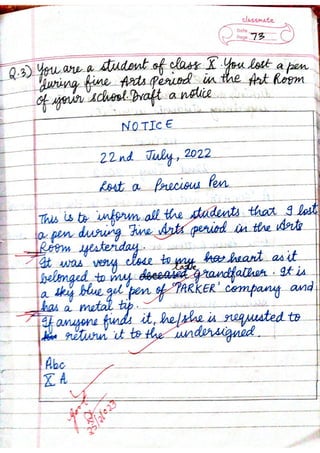 classmate
Date
Page 73
Q.3) You are a student of class X. You lost a pen
during fine Arts Period in the Art Room
of your school. Draft a notice
NOTICE
22nd July, 2022
Lost a Precious Pen
This is to inform all the students that I lost
a pen during Fine Arts period in the Arts
Room yesterday.
It was very close to my heart as it
belonged to my late grandfather. It is
a sky blue gel pen of 'PARKER' company and
has a metal tip.
If anyone finds it, he/she is requested to
return it to the undersigned.
Abc
X A